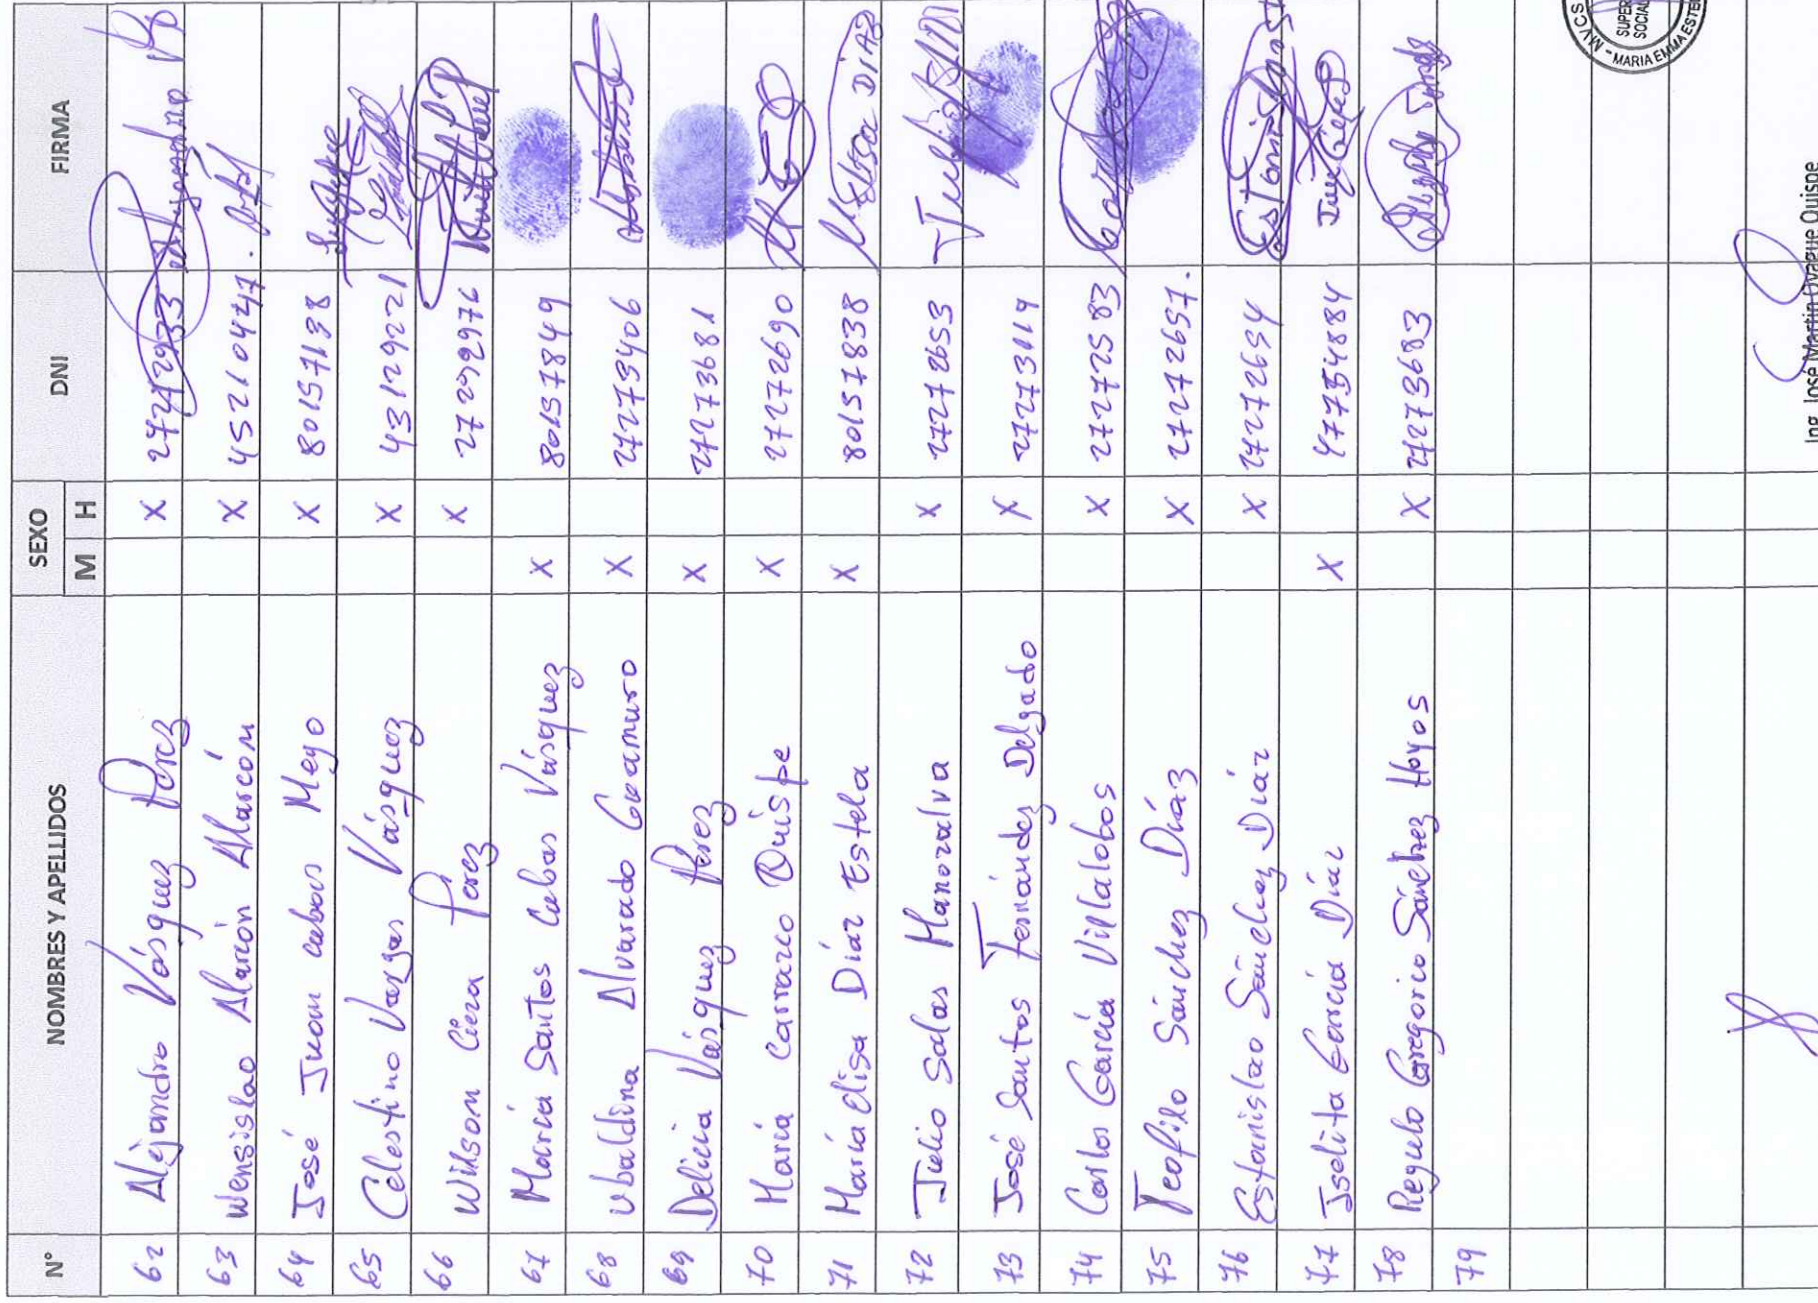 N° NOMBRES Y APELLIDOS SEXO DNI FIRMA
M H
62 Alejandro Vásquez Perez X
63 Wensislao Alarcón Alarcón X 45210447.
64 José Juan cubas Mego X 80157138
65 Celestino Vargas Vásquez X 43129221
66 Wilson Cieza Pérez X 27292976
67 María Santos Cubas Vásquez X 80157849
68 Ubaldina Alvarado Guamuro X 27273406
69 Delicia Vásquez Pérez X 27273681
70 María Carrazco Quispe X 27272690
71 María Elisa Díaz Estela X 80157838 Elisa DiAZ
72 Julio Salas Manozalva X 27272653
73 José Santos Fernández Delgado X 27273019
74 Carlos García Villalobos X 27272583
75 Teofilo Sánchez Díaz X 27272657.
76 Estanislao Sánchez Díaz X 27272634
77 Iselita García Díaz X 47754884
78 Regulo Gregorio Sánchez Hoyos X 27273683
79
MVCS - MARIA EMMA ESTE
SUPER
SOCIAL
Ing. José Martin Oyague Quispe